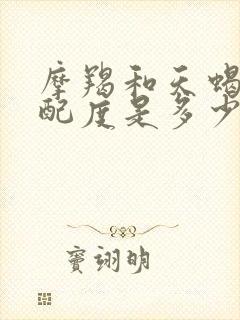 摩羯和天蝎
配度是多少
窦翊明